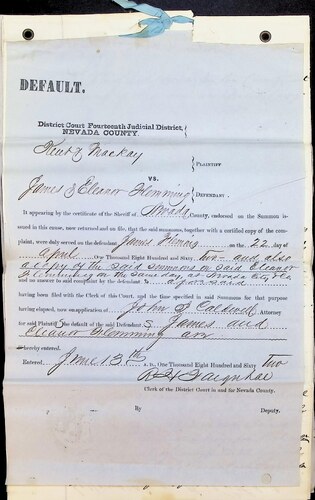 DEFAULT.
District Court Fourteenth Judicial District,
NEVADA COUNTY.
Kent & Mackay
PLAINTIFF
VS.
James & Eleanor Flemming
DEFENDANT.
It appearing by the certificate of the Sheriff of Nevada County, endorsed on the Summons
issued in this cause, now returned and on file, that the said summons, together with a certified copy of the
complaint, were duly served on the defendant James on the 22 day of
April One Thousand Eight Hundred and Sixty two and also
a copy of the said summons on said Eleanor
on the same day at Nevada
and no answer to said complaint by the defendant s aforesaid
having been filed with the Clerk of this Court, and the time specified in said Summons for that purpose
having elapsed, now on application of John Caldwell Attorney
for said Plaintiffs the default of the said Defendants James and
Eleanor Flemming are
hereby entered.
Entered, June 13th A. D. One Thousand Eight Hundred and Sixty Two
Clerk of the District Court in and for Nevada County.
By Deputy.